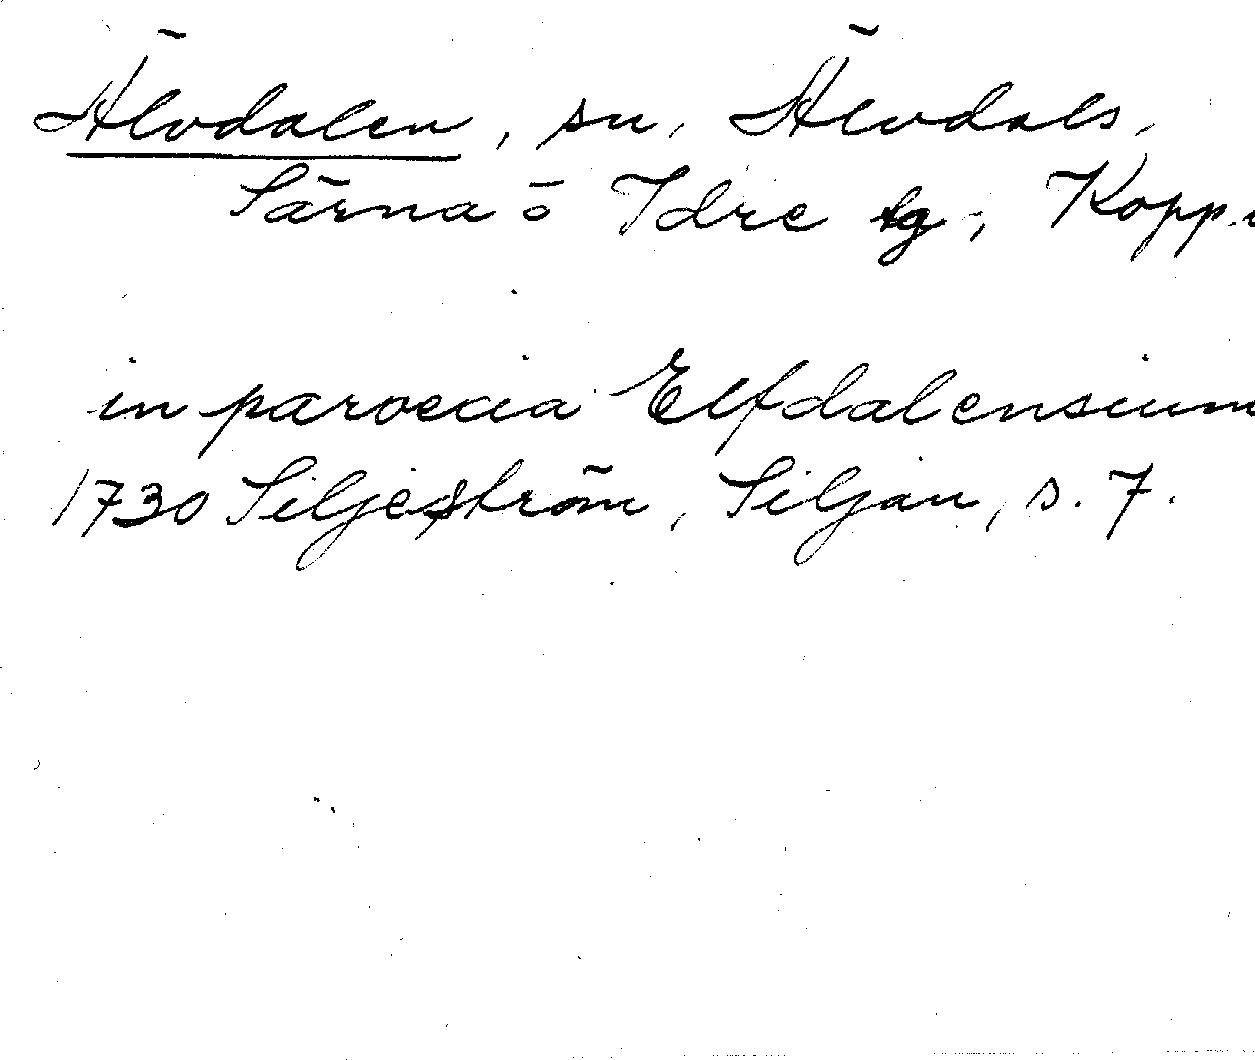 Älvdalen, sn, Älvdals,
Särna ö Idre tg, Kopp.
in paroecia Elfdalensium
1730 Siljeström, Siljan, s. 7.